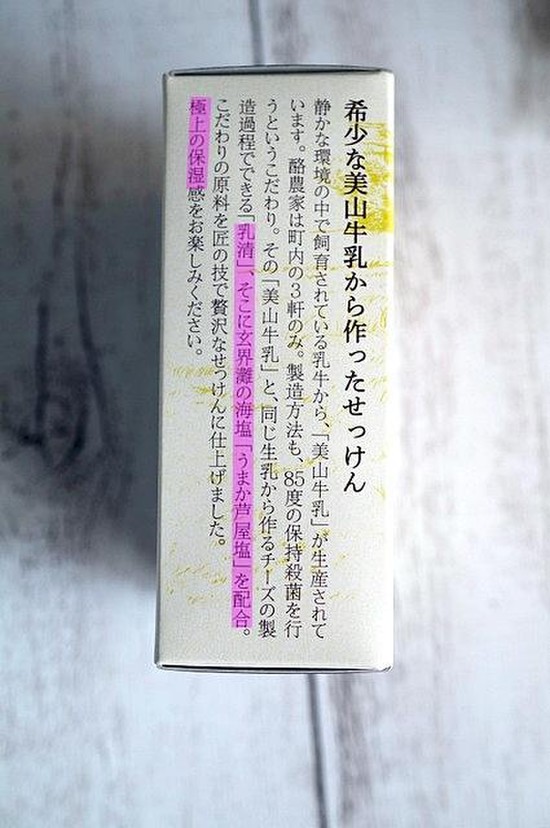 希少な美山牛乳から作ったせっけん
静かな環境の中で飼育されている乳牛から、「美山牛乳」が生産されて
います。酪農家は町内の3軒のみ。製造方法も、85度の保持殺菌を行
うというこだわり。その「美山牛乳」と、同じ生乳から作るチーズの製
造過程でできる「乳清」、そこに玄界灘の海塩「うまか芦屋塩」を配合。
こだわりの原料を匠の技で贅沢なせっけんに仕上げました。
極上の保湿感をお楽しみください。